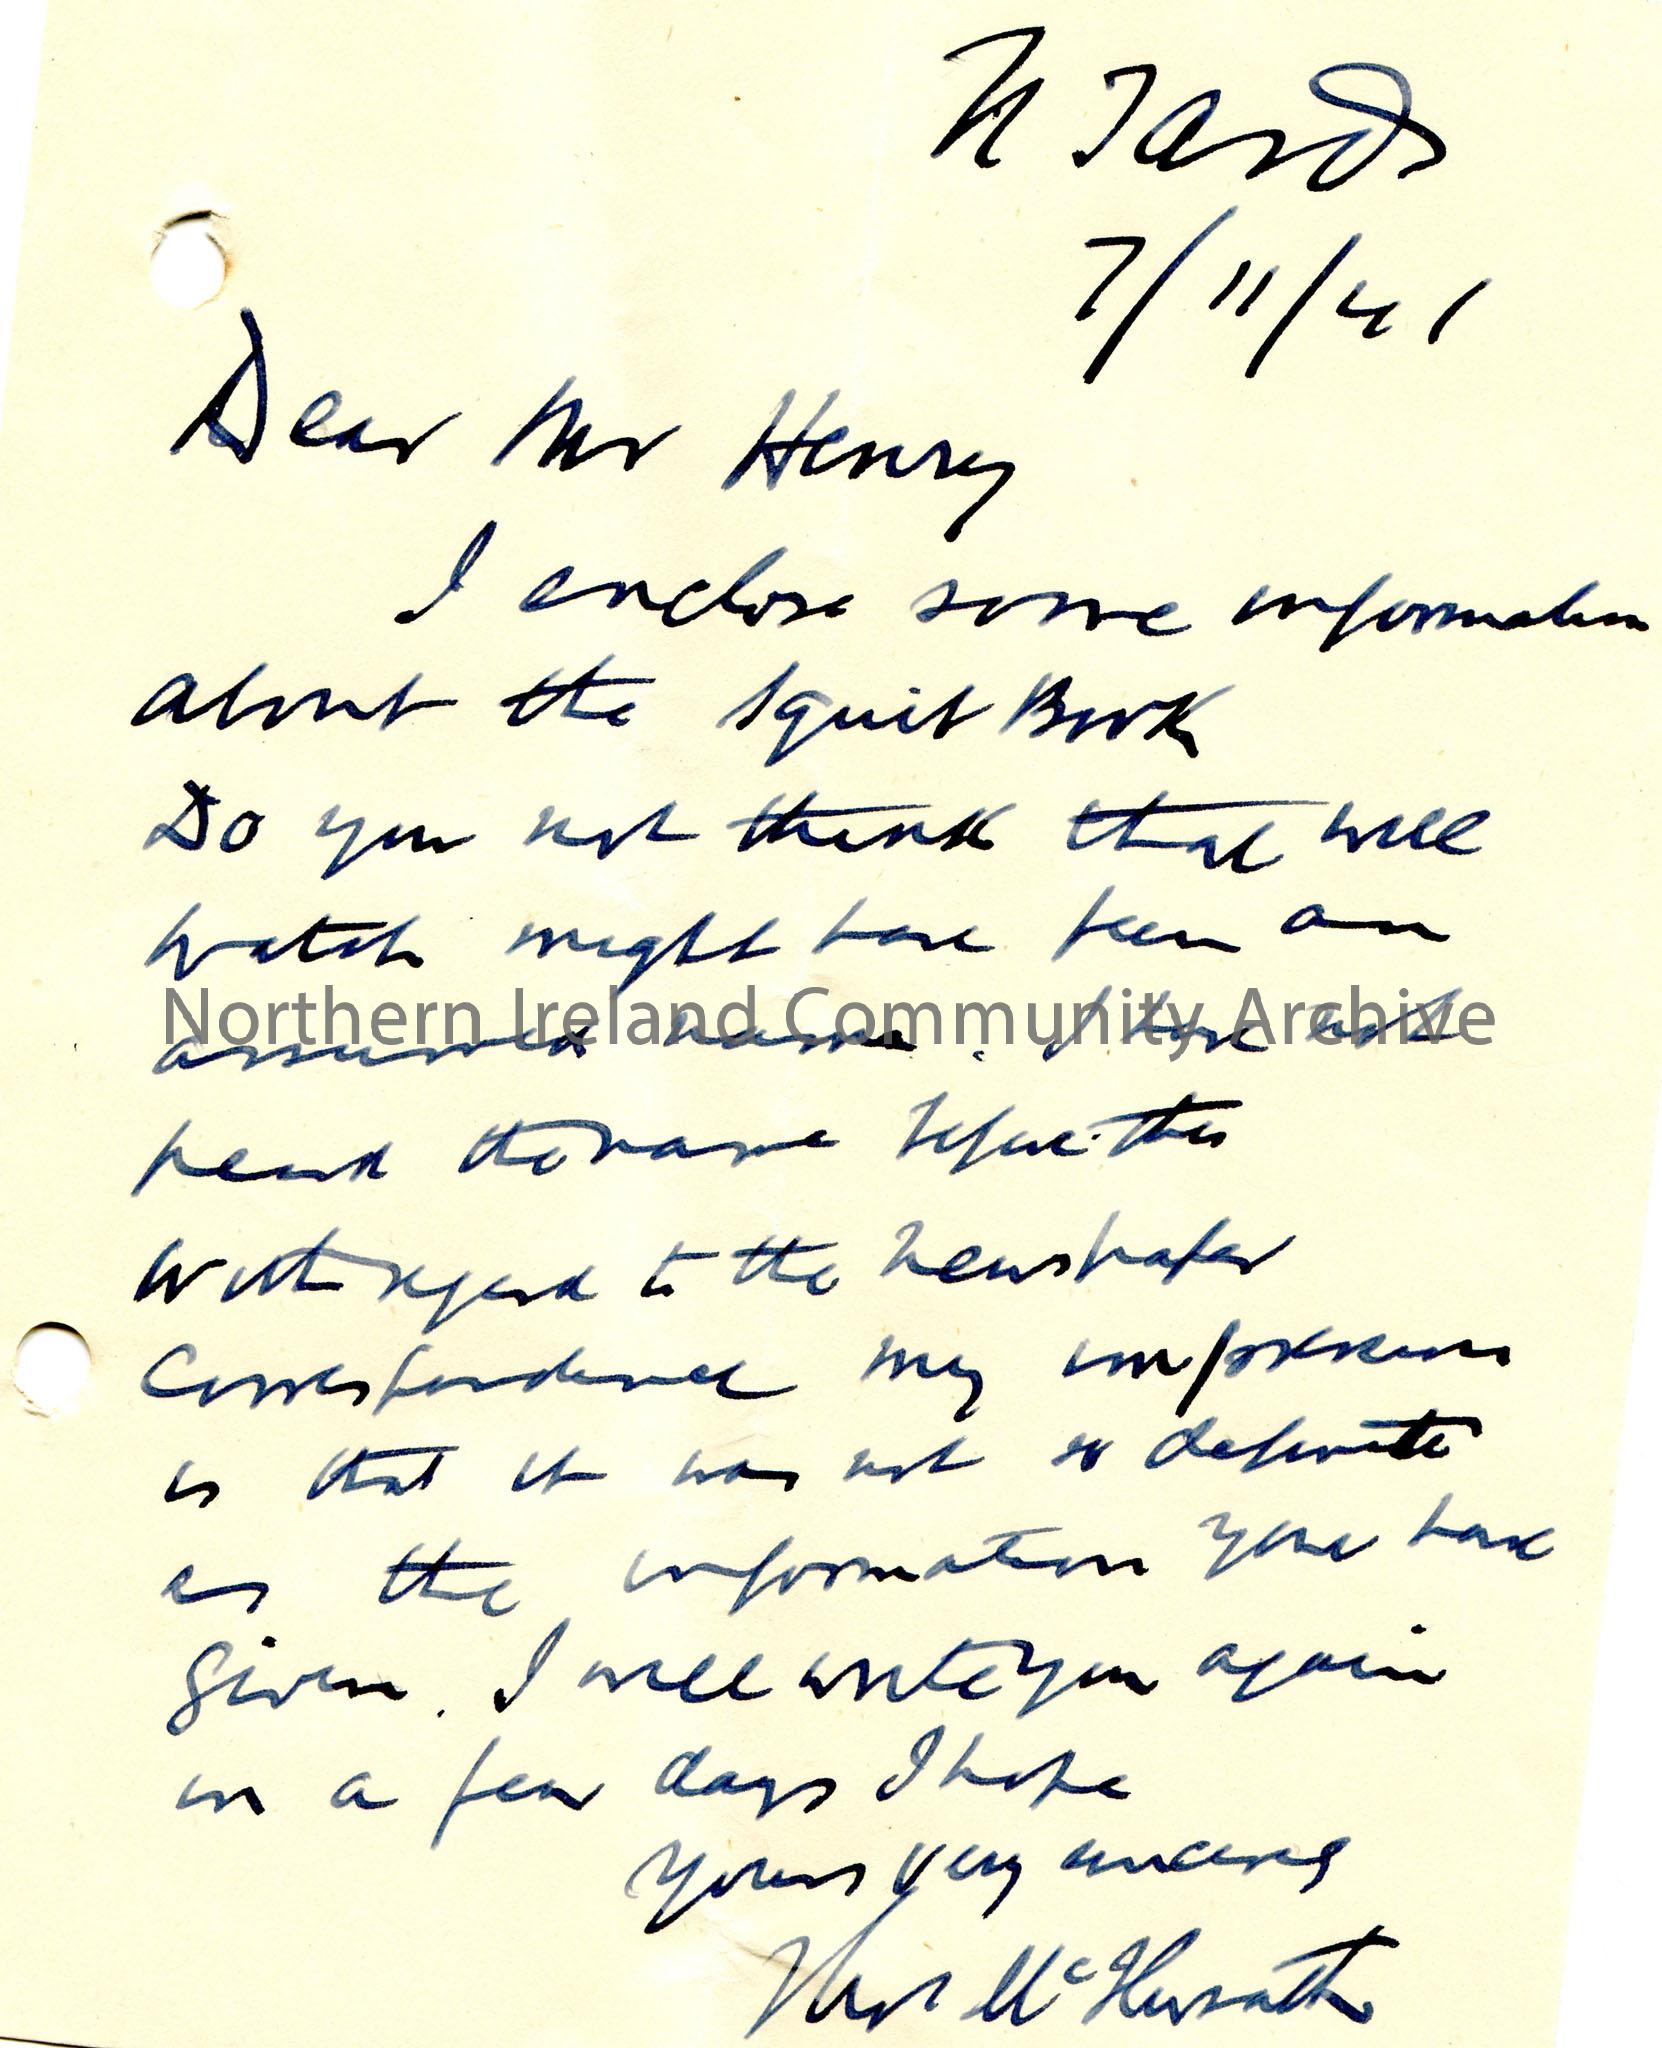 N Tards
7/11/41
Dear Mr Henry
I enclose some information
about the Squib Book
Do you not think that will
Watch might have been an
Northern Ireland Community Archive
assumed name. I have not
heard the name before this
With regard to the Newspaper
Correspondence my impression
is that it was not so definite
as the information you have
given. I will write you again
in a few days I hope
Yours very sincerely
Mc